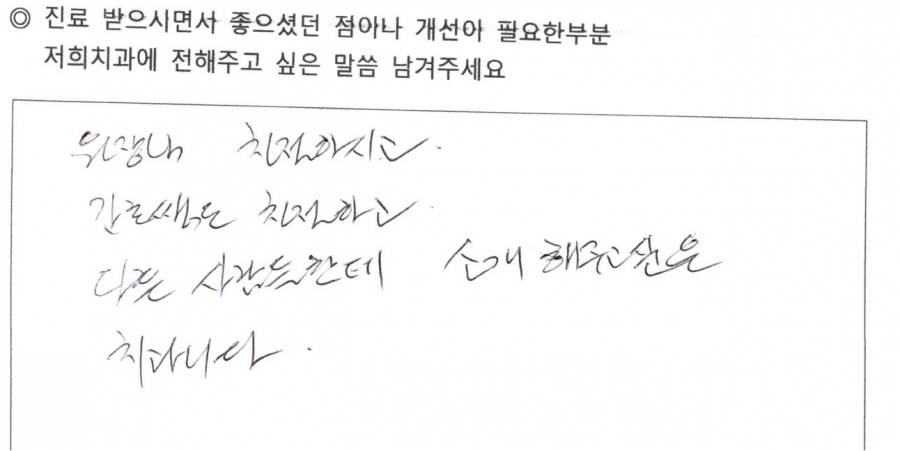 ◎ 진료 받으시면서 좋으셨던 점이나 개선이 필요한부분
저희치과에 전해주고 싶은 말씀 남겨주세요
원장님 친절하시고.
간호쌤들은 친절하고.
다른 사람들한테 소개 해주고싶은
치과니다.